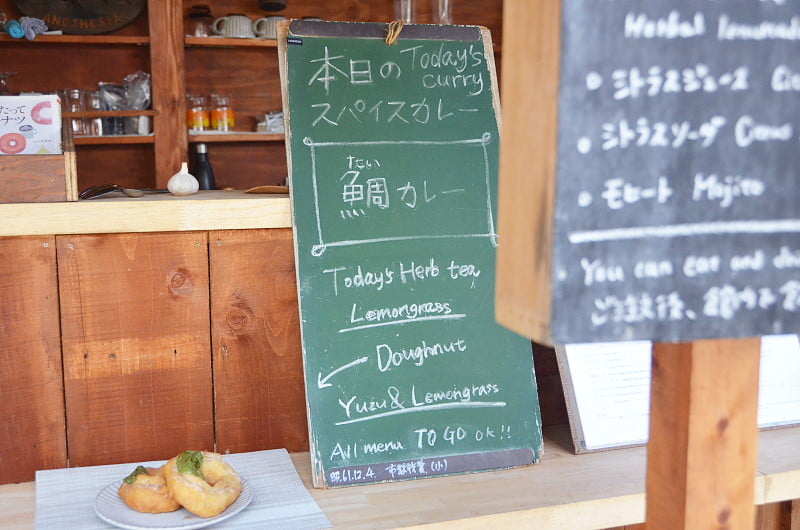 AND THE SEA
たって
ナツ
本日の Today's
curry
スパイスカレー
たい
鯛カレー
Today's Herb tea
Lemongrass
Doughnut
Yuzu & Lemongrass
All menu TO GO ok!!
昭.61.12.4.
Herbal lemonade
シトラスジュース
シトラスソーダ
モヒート Mojito
You can eat and
ご注文後、